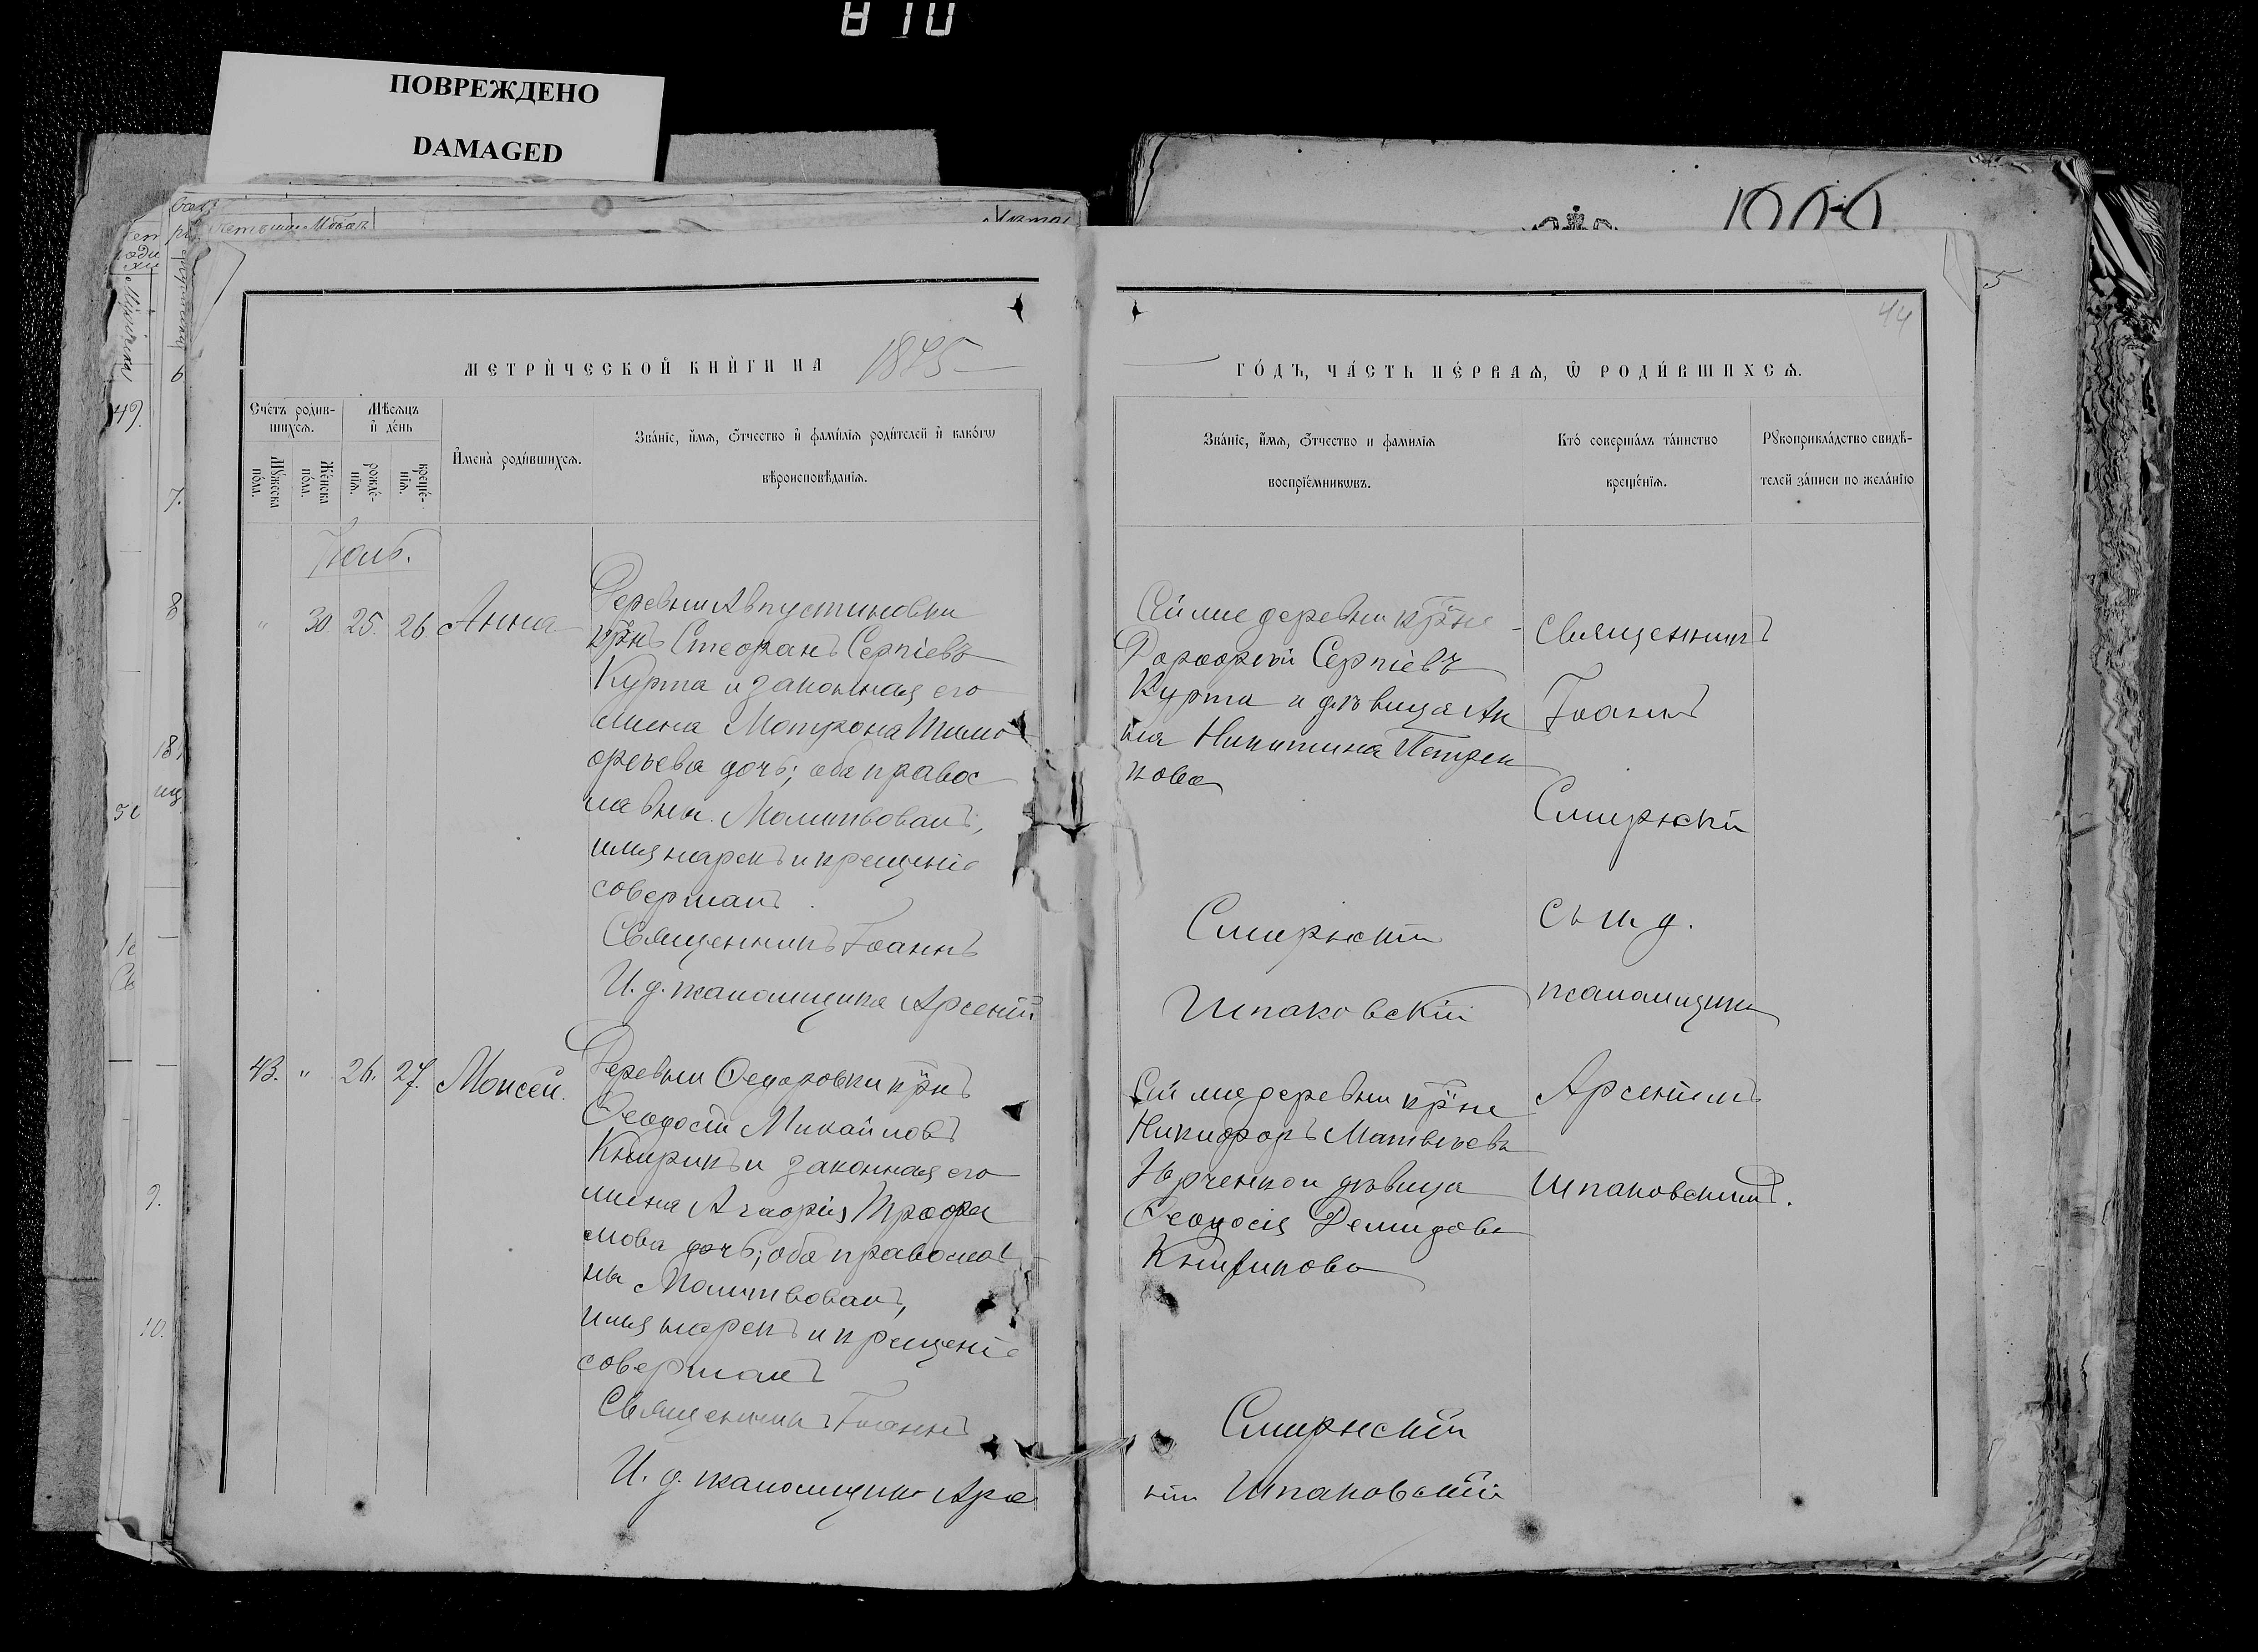 ПОВРЕЖДЕНО
DAMAGED
44
МЕТРИ́ЧЕСКОЙ КНИ́ГИ НА 1875
ГО́ДЪ, ЧА́СТЬ ПЕ́РВАѦ, Ѿ РОДИ́ВШИХСѦ.
Сче́тъ роди́в-
шихсѧ.
Мѣ́сѧцъ
и҆ де́нь
Му́жеска
по́ла.
Же́нска
по́ла.
рожде́-
нїѧ.
креще́-
нїѧ.
И҆мена̀ роди́вшихсѧ.
Зва́нїе, и҆́мѧ, ѻ҆́тчество и҆ фами́лїѧ роди́телей и҆ како́гѡ
вѣроисповѣ́данїѧ.
Зва́нїе, и҆́мѧ, ѻ҆́тчество и фами́лїѧ
воспрїе́мникѡвъ.
Кто̀ соверша́лъ та́инство
креще́нїѧ.
Рꙋкоприкла́дство свидѣ́-
телей за́писи по жела́нїю
Іюль.
" 30 25. 26. Анна
Деревни Августиновки
крн̃ъ Стефанъ Сергіевъ
Курта и законная его
жена Матрона Тимо
феева дочь; оба правос
лавны. Молитвовалъ,
имя нарекъ и крещеніе
совершалъ.
Священникъ Іоаннъ
И. д. псаломщика Арсеній
Сей же деревни крн̃е
Дорофей Сергіевъ
Курта и дѣвица Ан
на Никитина Петрен
кова
Смирнскій
Шпаковскій
Священникъ
Іоаннъ
Смирнскій
съ и. д.
псаломщика
Арсеніемъ
Шпаковскимъ.
43. " 26. 27. Моисей.
Деревни Федоровки крн̃ъ
Феодосій Михайловъ
Книрикъ и законная его
жена Агафія Трофи
мова дочь; оба православ
ны Молитвовалъ,
имя нарекъ и крещеніе
совершалъ
Священникъ Іоаннъ
И. д. псаломщика Арсе
Сей же деревни крн̃е
Никифоръ Матвѣевъ
дѣвица
Феодосія Демидова
Книрикова
Смирнскій
ній Шпаковскій